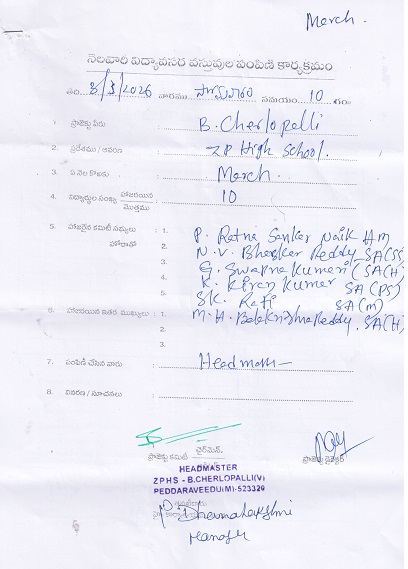 March.
నెలవారి విద్యావసర వస్తువుల పంపిణి కార్యక్రమం
తేది 8/3/2026 వారము సోమవారం సమయం 10 గం
1. ప్రాజెక్టు పేరు : B. Cherlopalli
2. ప్రదేశము / ఆవరణ : ZP High School.
3. ఏ నెల కొరకు : March.
4. విద్యార్థుల సంఖ్య హాజరయిన మొత్తము : 10
5. హాజరైన కమిటీ సభ్యులు : 1. P. Ratna Sankar Naik HM
హోదాతో 2. N. V. Bhaskar Reddy SA(SS)
3. G. Swapna Kumari (SA(H)
4. K. Kiran Kumar SA(PS)
5. SK. Rafi SA(M)
6. హాజరయిన ఇతర ముఖ్యులు : 1. M. H. Balakrishna Reddy. SA(H)
2.
3.
7. పంపిణి చేసిన వారు : Headmast
8. వివరణ / సూచనలు :
చైర్‌మెన్,
ప్రాజెక్టు కమిటీ
ప్రాజెక్టు డైరెక్టర్
HEADMASTER
ZPHS - B.CHERLOPALLI(V)
PEDDARAVEEDU(M)-523320
P Dhanalakshmi
Manager